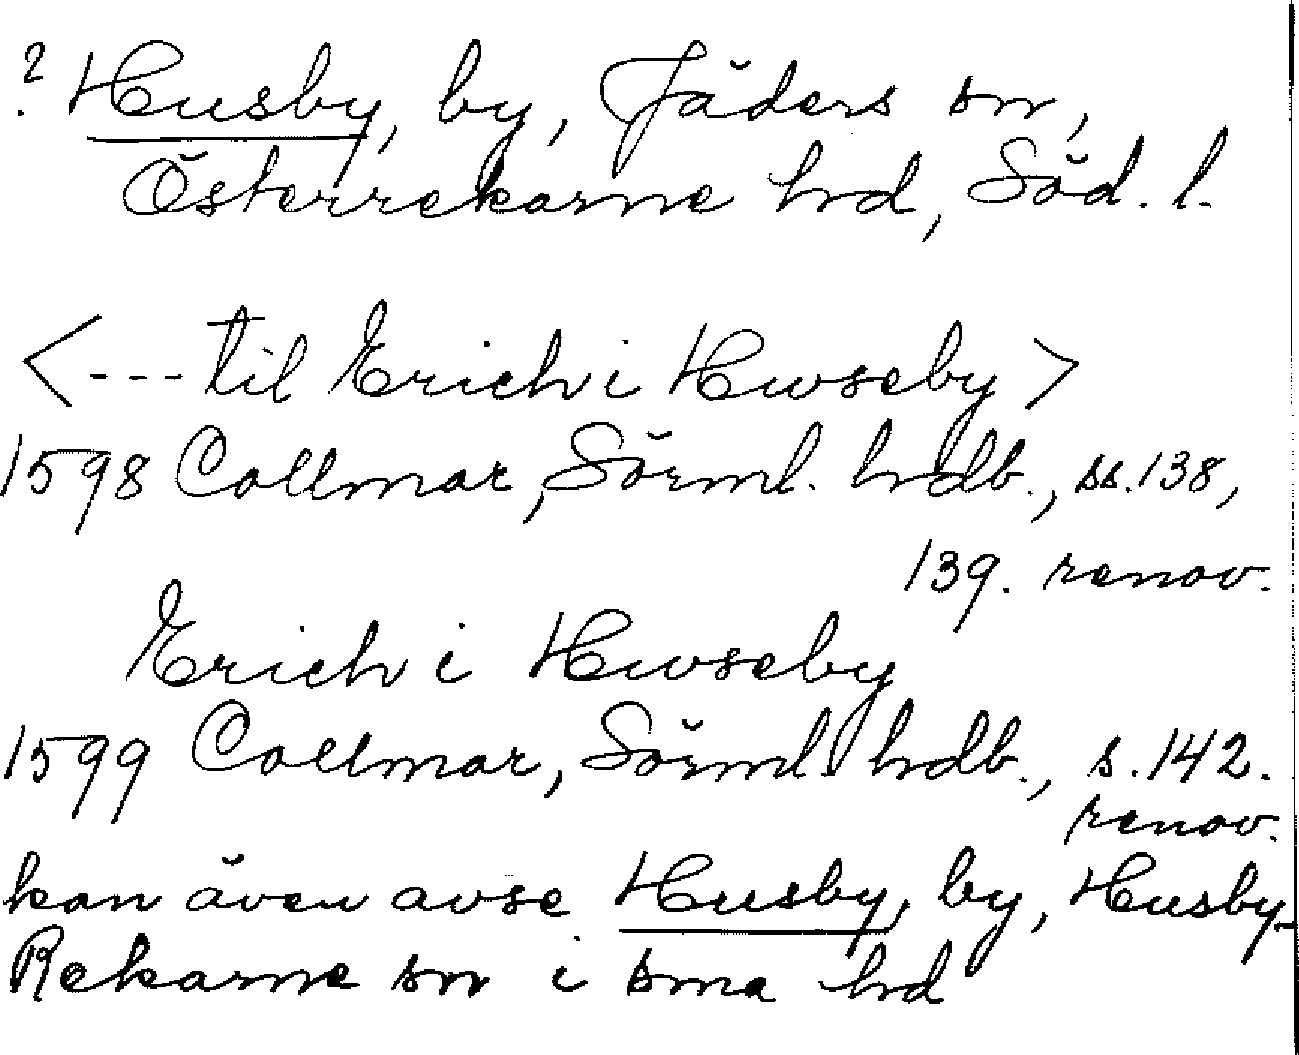 ? Husby, by, Jäders sn,
Österrekarne hd, Söd. l.
<--- til Erich i Hwseby>
1598 Collmar, Sörml. hdb., ss. 138,
139. renov.
Erich i Hwseby
1599 Collmar, Sörml. hdb., s. 142.
renov.
kan även avse Husby, by, Husby-
Rekarne sn i sma hd